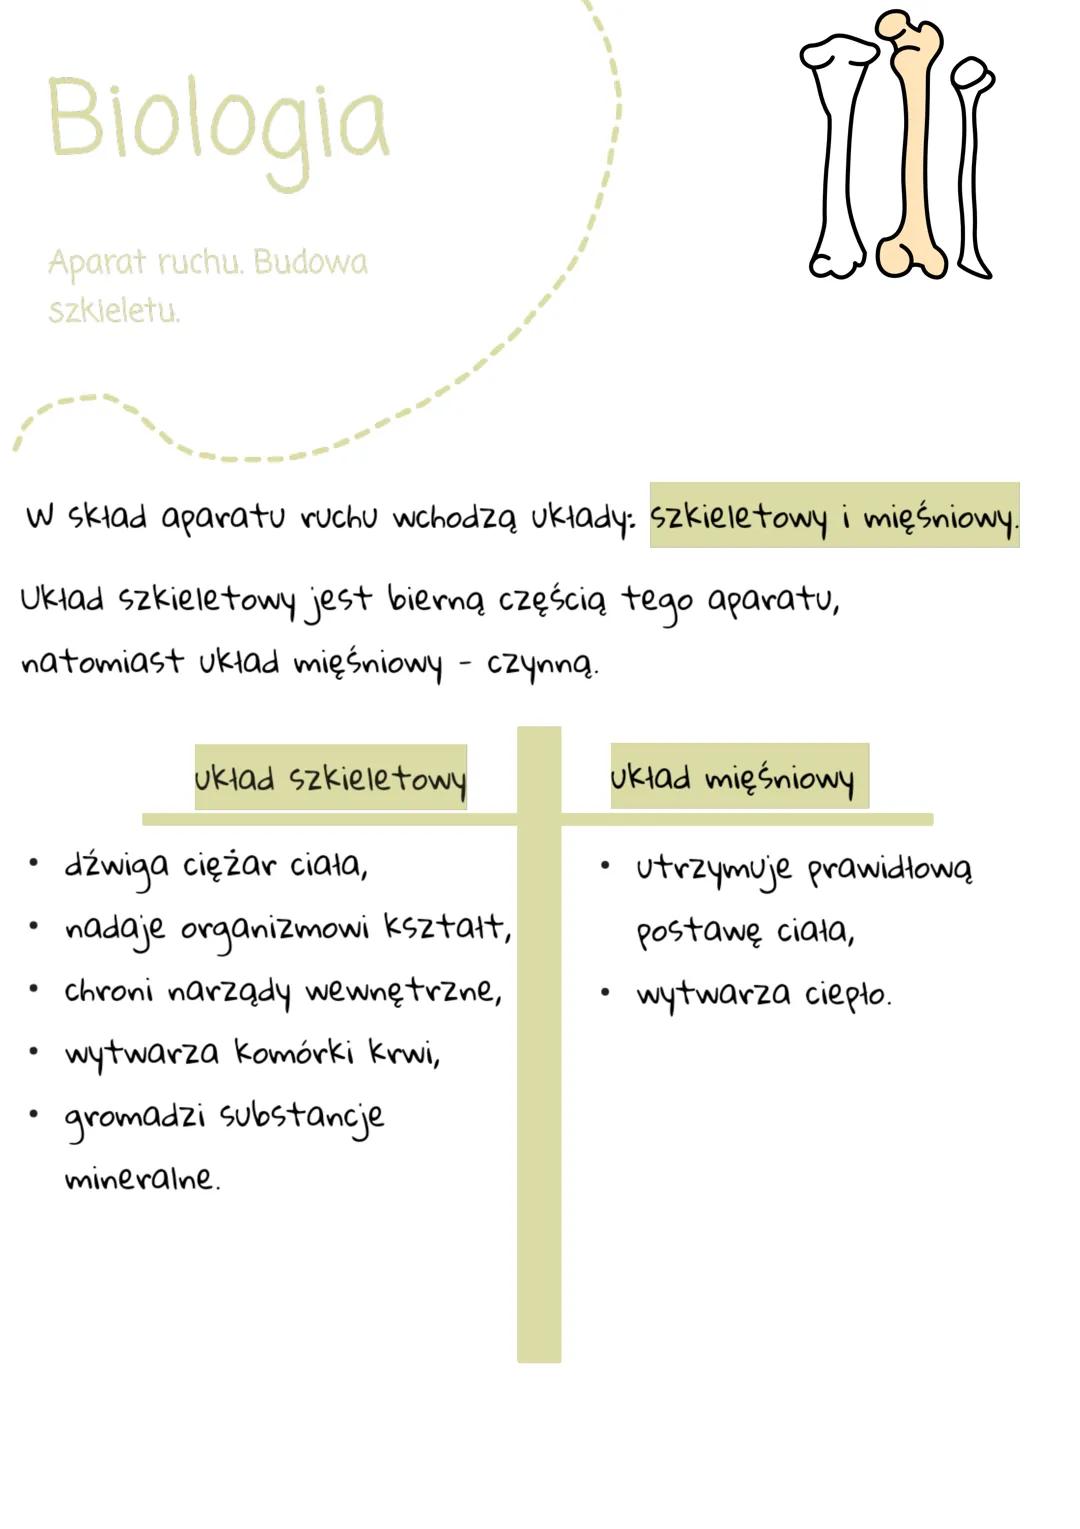 Biologia
Aparat ruchu. Budowa
szkieletu.
W skład aparatu ruchu wchodzą układy: szkieletowy i mięśniowy.
Układ szkieletowy jest bierną częścią tego aparatu,
natomiast układ mięśniowy - czynną.
układ szkieletowy
dźwiga ciężar ciała,
nadaje organizmowi kształt,
chroni narządy wewnętrzne,
wytwarza komórki krwi,
gromadzi substancje
mineralne.
układ mięśniowy
utrzymuje prawidłową
postawę ciała,
wytwarza ciepło.